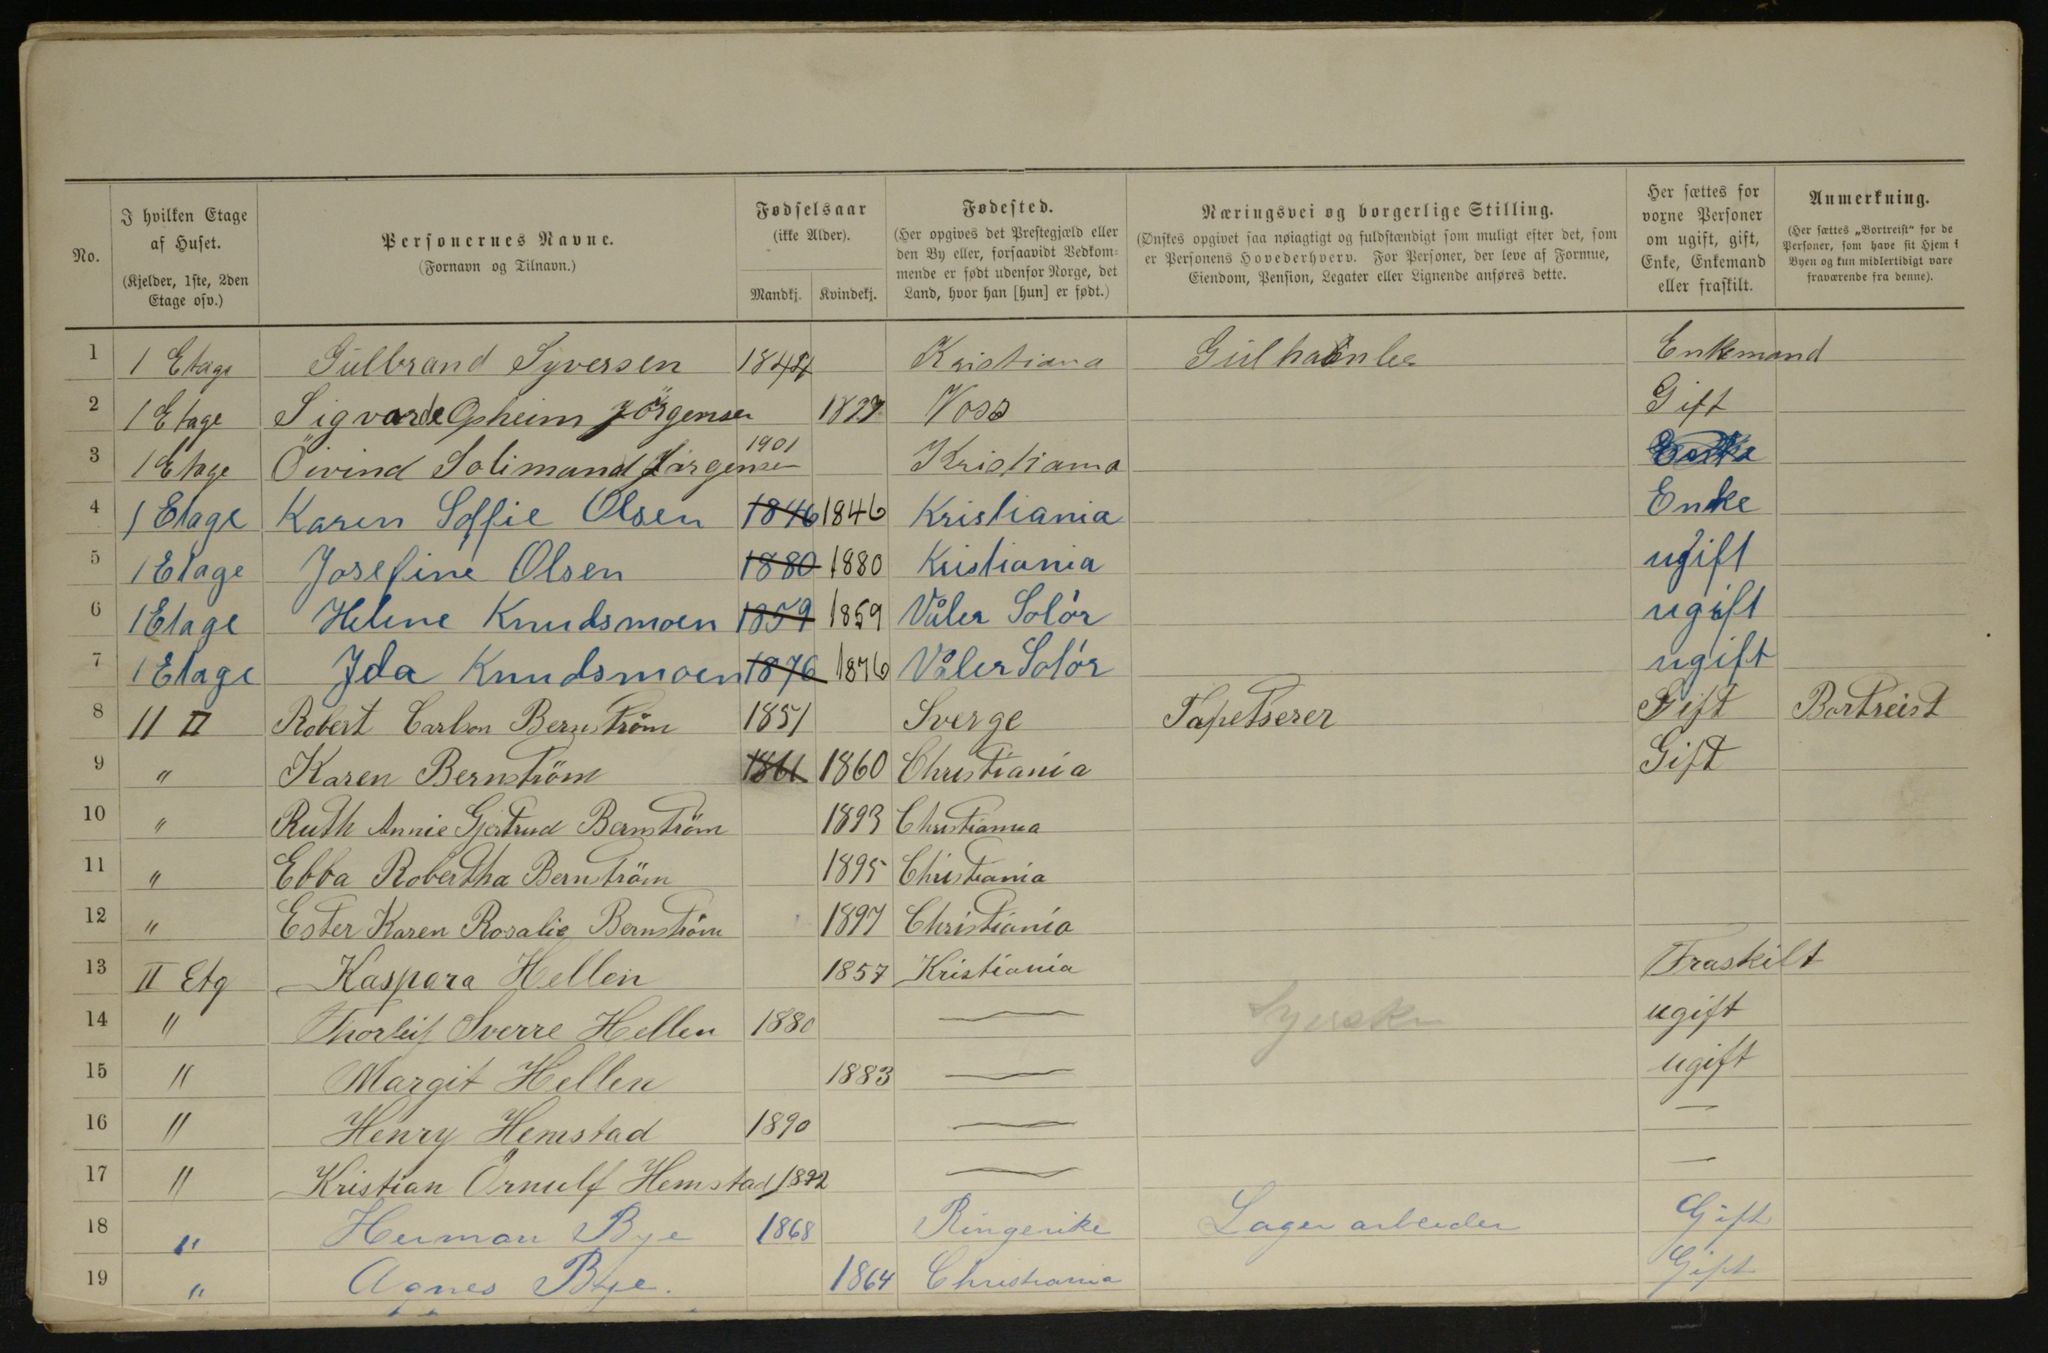 No.
I hvilken Etage af Huset.
(Kjelder, 1ste, 2den Etage osv.)
Personernes Navne.
(Fornavn og Tilnavn.)
Fødselsaar
(ikke Alder).
Mandkj. Kvindekj.
Fødested.
(Her opgives det Prestegjæld eller den By eller, forsaavidt Vedkommende er født udenfor Norge, det Land, hvor han [hun] er født.)
Næringsvei og borgerlige Stilling.
(Ønskes opgivet saa nøiagtigt og fuldstændigt som muligt efter det, som er Personens Hovederhverv. For Personer, der leve af Formue, Eiendom, Pension, Legater eller Lignende anføres dette.
Her sættes for voxne Personer om ugift, gift, Enke, Enkemand eller fraskilt.
Anmerkning.
(Her sættes „Bortreist“ for de Personer, som have sit Hjem i Byen og kun midlertidigt være fraværende fra denne).
1 1 Etage Gulbrand Syversen 1844 Kristiana Enkemand
2 1 Etage Sigvarde Opheim Jörgensen Voss Gift
3 1 Etage Öivind Solimand Jörgensen 1901 Kristiana Enke
4 1 Etage Karen Soffie Olsen 1846 1846 Kristiania Enke
5 1 Etage Josefine Olsen 1880 1880 Kristiania ugift
6 1 Etage Helene Knudsmoen 1859 1859 Våler Solör ugift
7 1 Etage Ida Knudsmoen 1876 1876 Våler Solör ugift
8 11 II Robert Carlson Bernström 1851 Sverge Tapetserer Gift Bortreist
9 " Karen Bernström 1861 1860 Christiania Gift
10 " Ruth Annie Gjertrud Bernström 1893 Christiania
11 " Ebba Robertha Bernström 1895 Christiania
12 " Ester Karen Rosalie Bernström 1897 Christiania
13 II Etg Kaspara Hellen 1857 Kristiania Fraskilt
14 " Thorleif Sverre Hellen 1880 — Syerske ugift
15 " Margit Hellen 1883 — ugift
16 " Henry Hemstad 1890 — —
17 " Kristian Örnulf Hemstad 1892 — —
18 " Herman Bye 1868 Ringerike Lagerarbeider Gift
19 " Agnes Bye. 1864 Christiania Gift